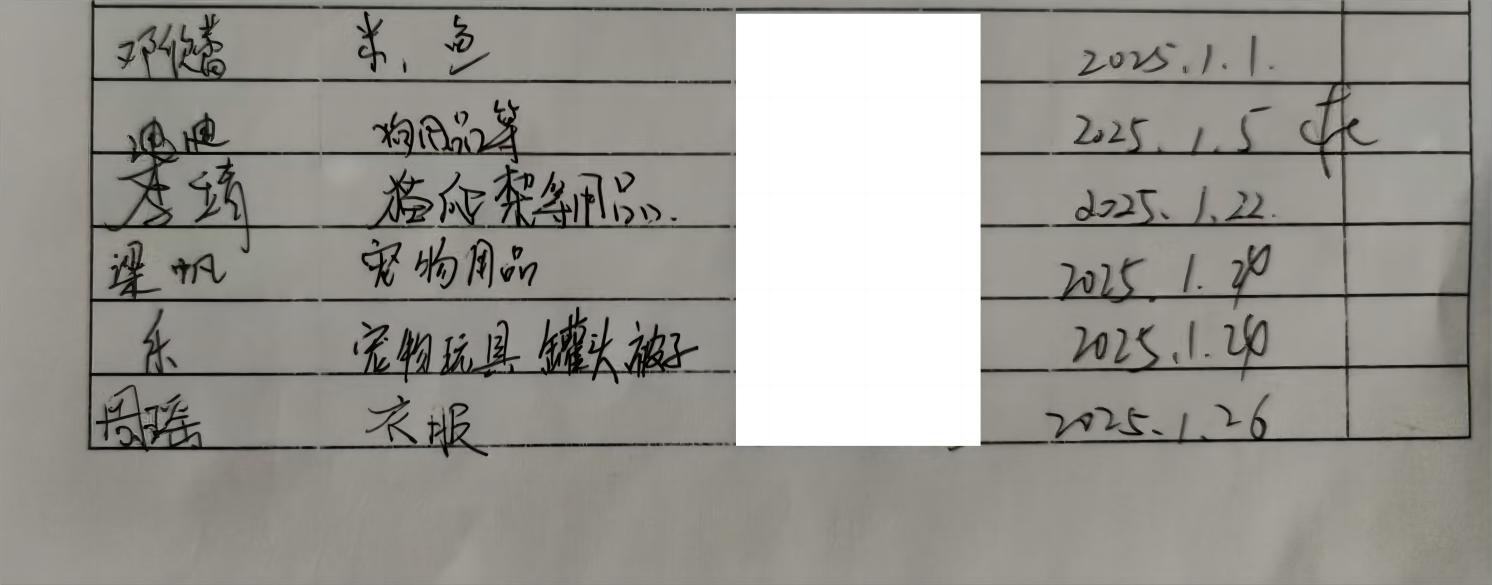 邓 米、鱼 2025.1.1.
迪迪 狗用品等 2025.1.5
李靖 猫爬架等用品. 2025.1.22.
梁帆 宠物用品 2025.1.24
乐 宠物玩具 罐头 被子 2025.1.24
周瑶 衣服 2025.1.26